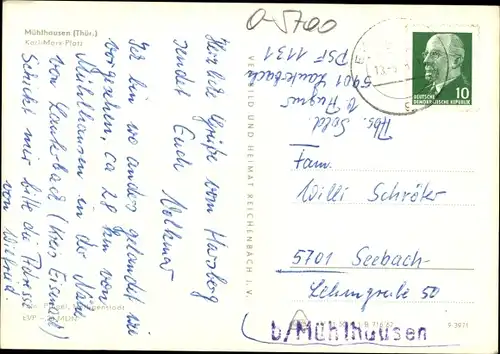 Mühlhausen (Thür.)
Karl-Marx-Platz
0-5700
Herzliche Grüße vom Harsberg
sendet Euch Volkmar
Ich bin wo anders gelandet wie
vorgesehen, ca 28 km von
Mühlhausen in der Nähe
von Lauksbach (Kreis Eisenach)
Schicket mir bitte die Adresse
von Wilfried.
VERLAG BILD UND HEIMAT REICHENBACH I. V.
Abs. Sold
V
5901 Lauksbach
PSF 1131
10
DEUTSCHE
DEMOKRATISCHE REPUBLIK
Fam.
Willi Schröter
5701 Seebach
50
b/Mühlhausen
EVP